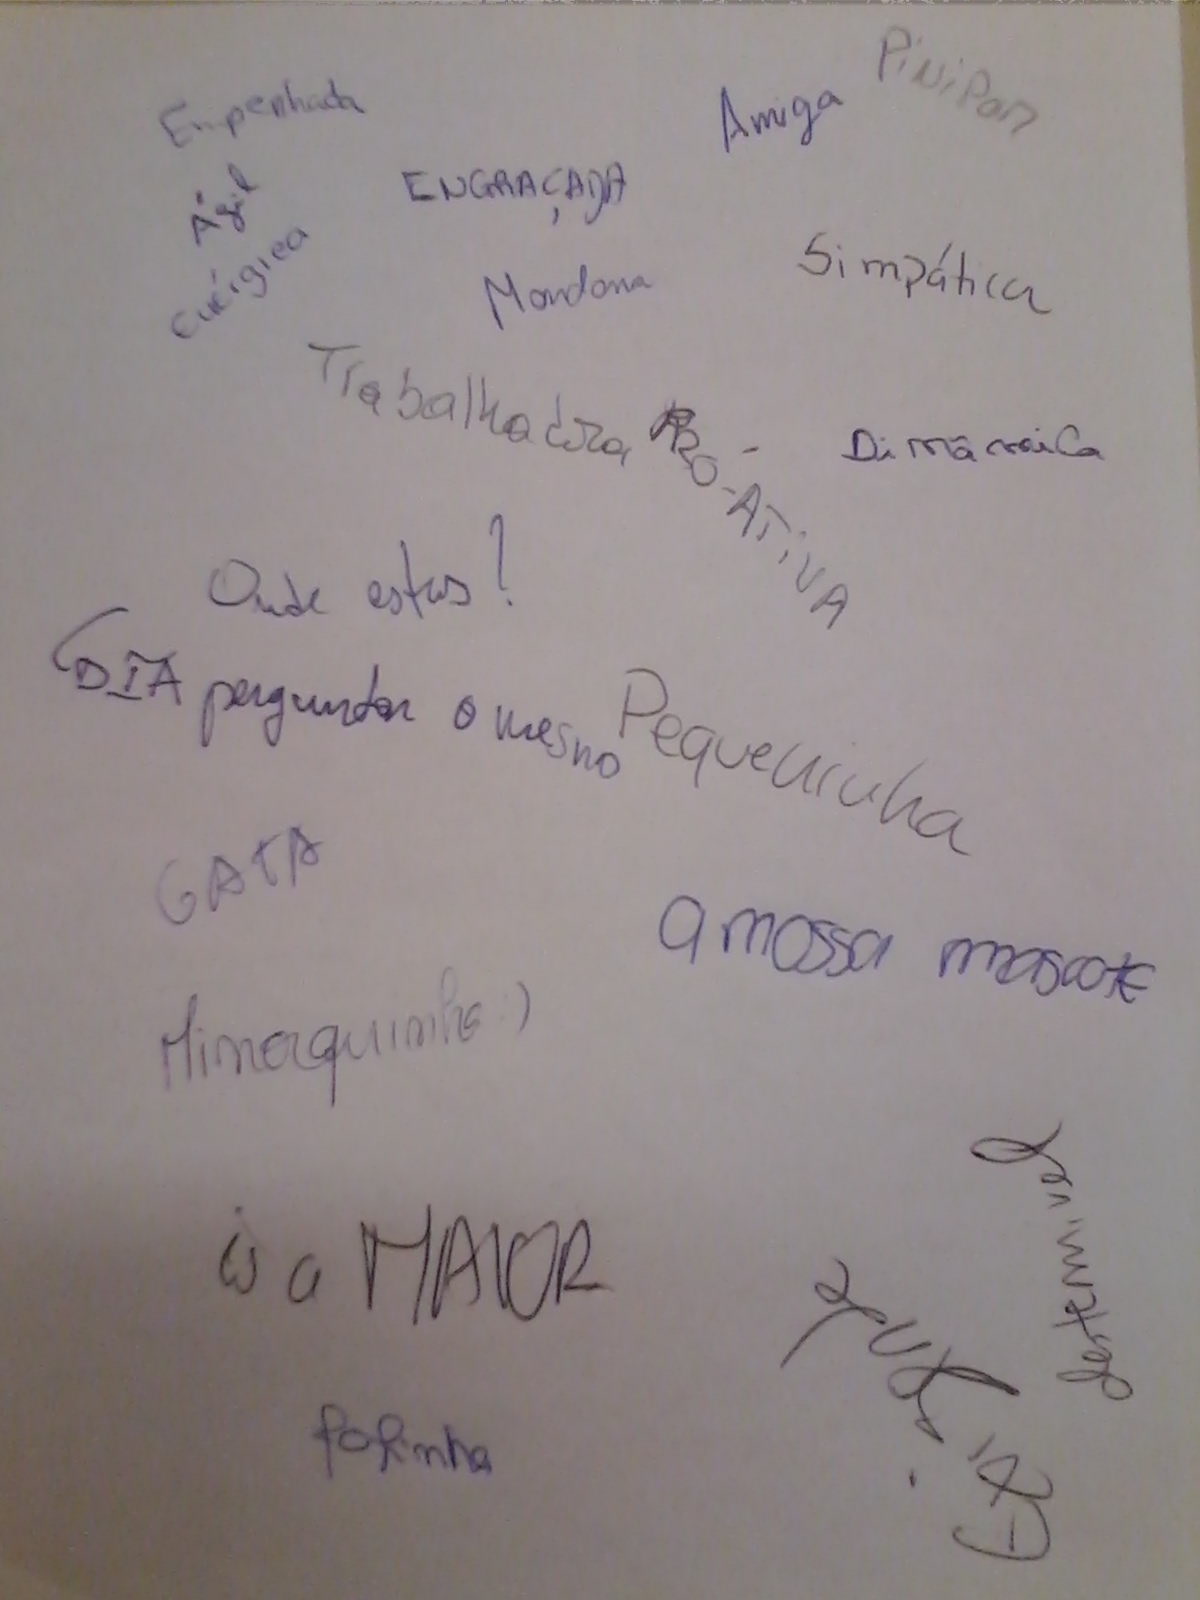 PiNiPon
Empenhada
Amiga
Ágil
ENGRAÇADA
Enérgica
Simpática
Mandona
Trabalhadora
PRÓ-ATIVA
Dinâmica
Onde estas?
DIA perguntar o mesmo
Pequeninha
GATA
a nossa mascote
és a MAIOR
fofinha